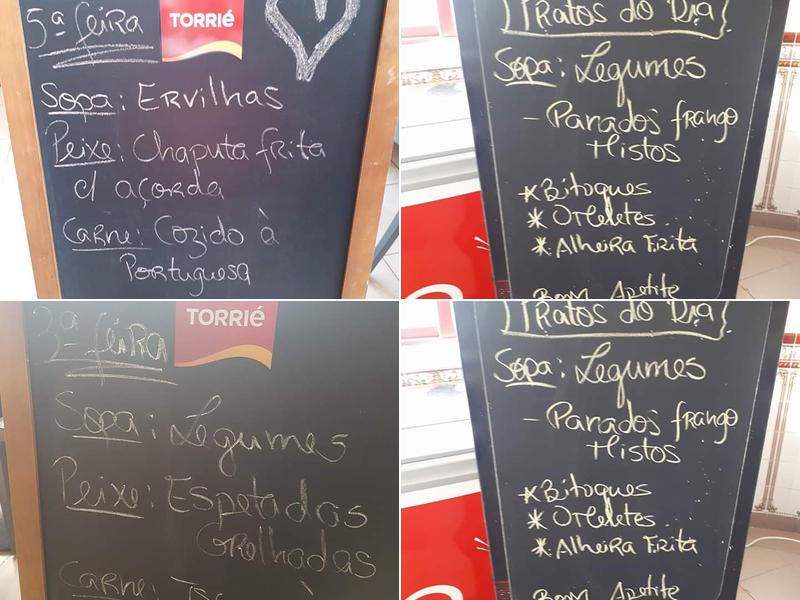 5ª feira
TORRIÉ
Sopa: Ervilhas
Peixe: Chaputa frita
c/ açorda
Carne: Cozido à
Portuguesa
Pratos do Dia
Sopa: Legumes
- Panados frango
Mistos
* Bitoques
* Omeletes...
* Alheira Frita
Bom Apetite
3ª feira
TORRIÉ
Sopa: Legumes
Peixe: Espetadas
Grelhadas
Carne:
Pratos do Dia
Sopa: Legumes
- Panados frango
Mistos
* Bitoques
* Omeletes...
* Alheira Frita
Bom Apetite